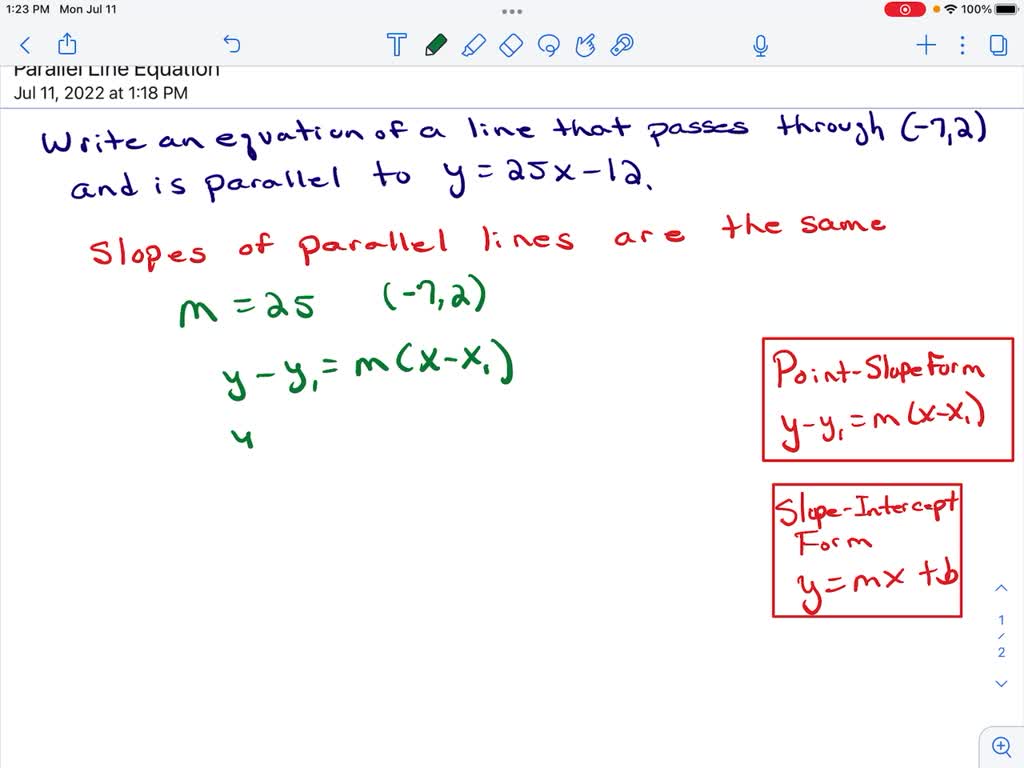 1:23 PM Mon Jul 11
100%
T
Parallel Line Equation
Jul 11, 2022 at 1:18 PM
Write an equation of a line that passes through (-7,2)
and is parallel to y = 25x - 12.
Slopes of parallel lines are the same
m = 25 (-7,2)
y - y₁ = m(x - x₁)
y
Point-Slope Form
y - y₁ = m(x - x₁)
Slope-Intercept
Form
y = mx + b
1
/
2